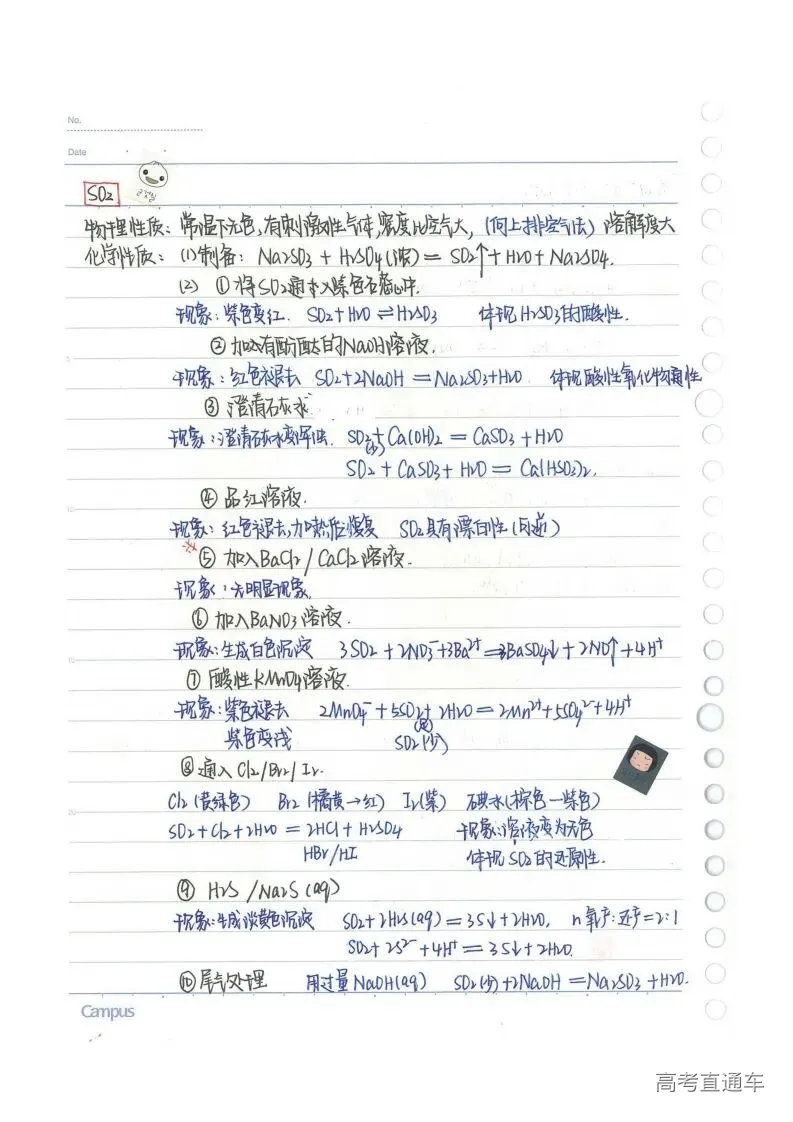 No.
Date
SO2
物理性质：常温下无色,有刺激性气体,密度比空气大,(向上排空气法) 溶解度大
化学性质：(1)制备：Na2SO3 + H2SO4(浓) = SO2↑ + H2O + Na2SO4.
(2) ①将SO2通入紫色石蕊中.
现象：紫色变红. SO2+H2O ⇌ H2SO3 体现H2SO3的酸性.
②加入有酚酞的NaOH溶液.
现象：红色褪去 SO2+2NaOH = Na2SO3+H2O 体现酸性氧化物通性
③澄清石灰水
现象：澄清石灰水变浑浊. SO2(少) + Ca(OH)2 = CaSO3 + H2O
SO2 + CaSO3 + H2O = Ca(HSO3)2.
④品红溶液.
现象：红色褪去,加热后恢复 SO2具有漂白性(可逆)
⑤加入BaCl2/CaCl2溶液.
现象：无明显现象.
⑥加入BaNO3溶液.
现象：生成白色沉淀 3SO2 + 2NO3⁻+3Ba²⁺=3BaSO4↓+2NO↑+4H⁺
⑦酸性KMnO4溶液.
现象：紫色褪去 2MnO4⁻ + 5SO2(足) + 2H2O = 2Mn²⁺+5SO4²⁻+4H⁺
紫色变浅 SO2(少)
⑧通入Cl2/Br2/I2.
Cl2(黄绿色) Br2(橘黄→红) I2(紫) 碘水(棕色-紫色)
SO2+Cl2+2H2O = 2HCl + H2SO4 现象：溶液变为无色
HBr/HI 体现SO2的还原性.
⑨ H2S/Na2S(aq)
现象：生成淡黄色沉淀 SO2+2H2S(aq) = 3S↓+2H2O, n氧产:还产=2:1
SO2+2S²⁻+4H⁺ = 3S↓+2H2O.
⑩尾气处理 用过量NaOH(aq) SO2(少)+2NaOH = Na2SO3+H2O.
Campus
高考直通车